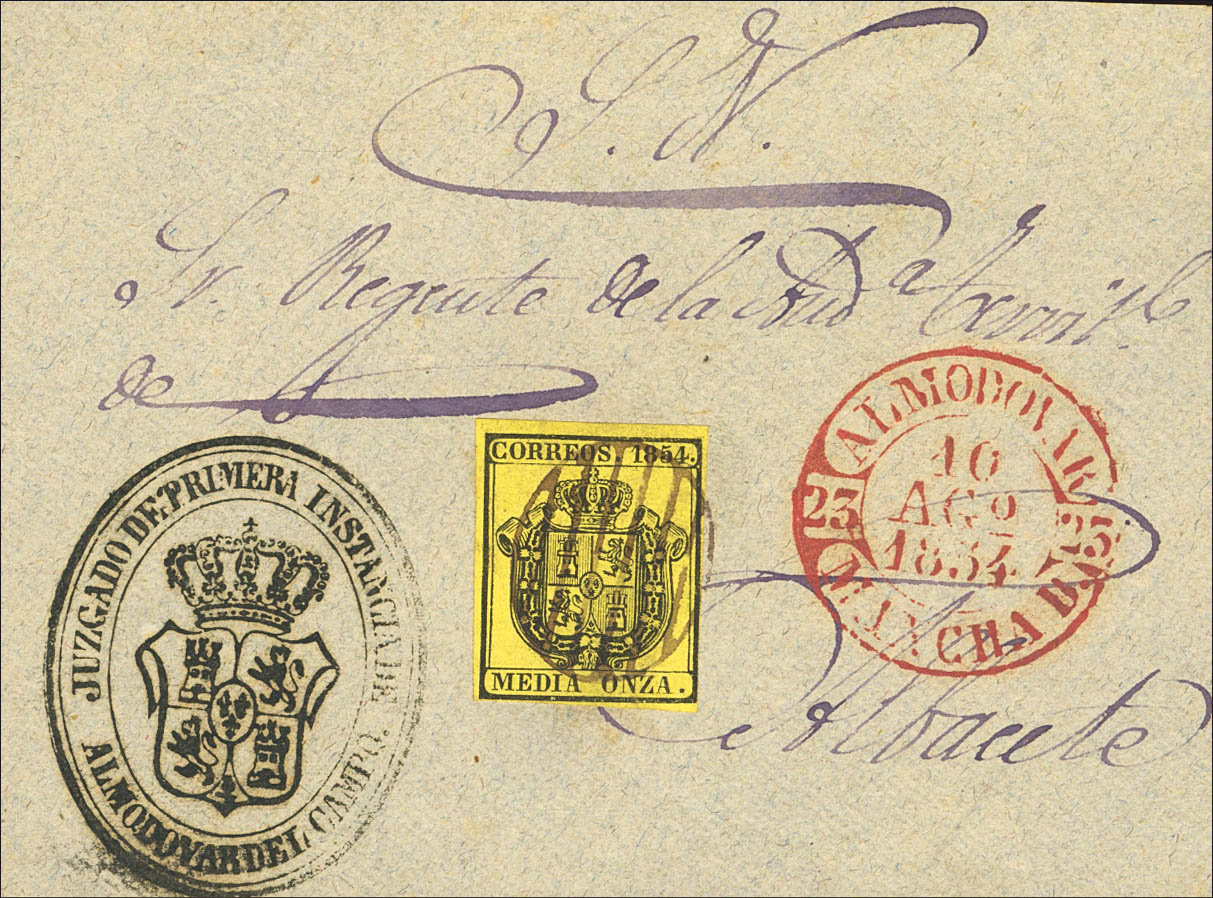 S. N.
Sr. Regente de la Aud.ª territ.l
de
Albacete
CORREOS. 1854.
MEDIA ONZA.
ALMODOVAR
23 23
10
AGO
1854
JUZGADO DE PRIMERA INSTANCIA DE
ALMODOVAR DEL CAMPO